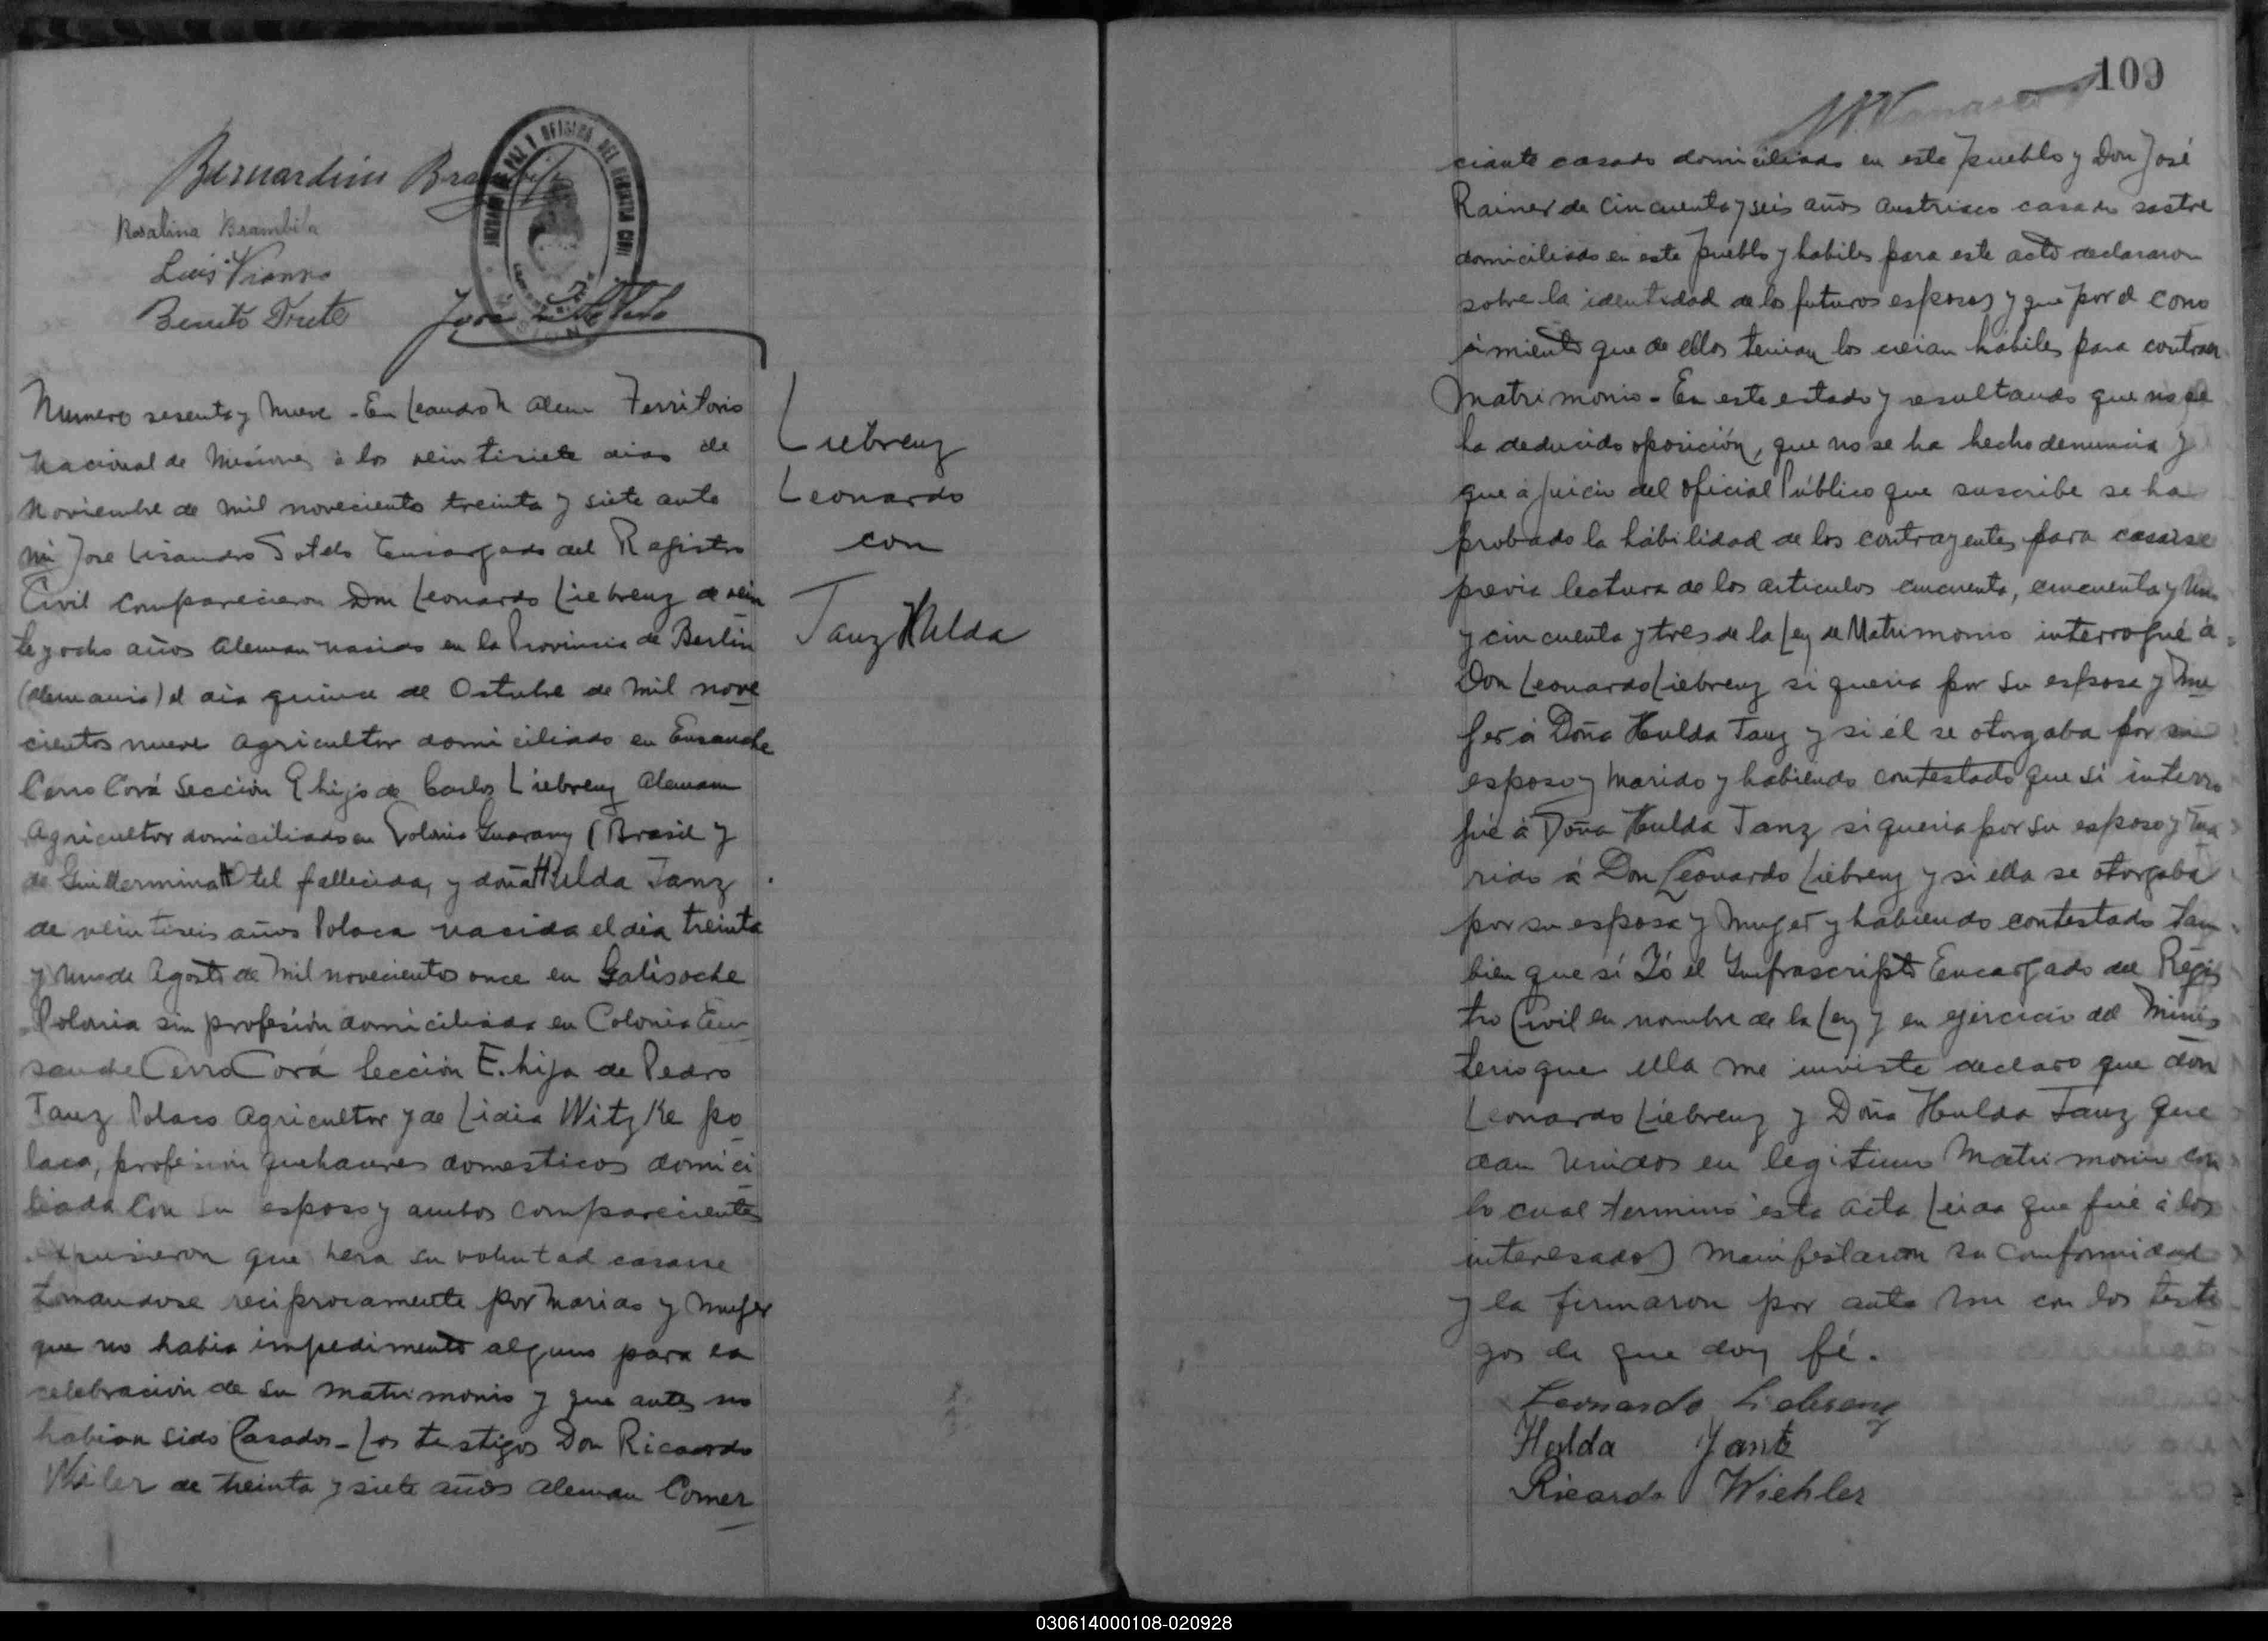 Bernardino Brambila
Rosalina Brambila
Luis Vianna
Benito Trute
JUZGADO DE PAZ Y OFICINA DEL REGISTRO CIVIL
Numero sesenta y nueve - En Leandro N Alem Territorio
Nacional de Misiones à los veintisiete dias de
Noviembre de mil noveciento treinta y siete ante
mi Jose Lisandro Sotelo Encargado del Registro
Civil comparecieron Don Leonardo Liebrenz de vein
te y ocho años Aleman nacido en la Provincia de Berlin
(Alemania) el dia quince de Octubre de mil nove
cientos nueve agricultor domiciliado en Ensanche
Cerro Corá Sección E hijo de Carlos Liebrenz Aleman
Agricultor domiciliado en Colonia Guarany (Brasil y
de Guillermina tel fallecida, y doña Hulda Tanz
de veintiseis años Polaca nacida el dia treinta
y uno de Agosto de mil novecientos once en Galisoche
Polonia sin profesión domiciliada en Colonia En
sanche Cerro Corá Sección E. hija de Pedro
Tanz Polaco Agricultor y de Lidia Witzke po
laca, profesion quehaceres domesticos domici
liada con su esposo y ambos comparecientes
expusieron que hera su voluntad casarse
tomandose reciprocamente por Marido y Mujer
que no habia impedimento alguno para la
celebración de su matrimonio y que antes no
habian sido Casados - Los testigos Don Ricardo
Wiler de treinta y siete años Aleman Comer
Liebrenz
Leonardo
con
Tanz Hulda
109
ciante casado domiciliado en este pueblo y Don José
Rainer de cincuenta y seis años austriaco casado sastre
domiciliado en este pueblo y habiles para este acto declararon
sobre la identidad de los futuros esposos y que por el cono
simiento que de ellos tenian los creian habiles para contraer
matrimonio - En este estado y resultando que no se
ha deducido oposición, que no se ha hecho denuncia y
que á juicio del oficial Público que suscribe se ha
probado la habilidad de los contrayentes para casarse
previa lectura de los articulos cincuenta, cincuenta y uno
y cincuenta y tres de la Ley de Matrimonio interrogué à
Don Leonardo Liebrenz si queria por su esposa y mu
jer á Doña Hulda Tanz y si él se otorgaba por su
esposo y marido y habiendo contestado que si interro
gué à Doña Hulda Tanz si queria por su esposo y ma
rido á Don Leonardo Liebrenz y si ella se otorgaba
por su esposa y mujer y habiendo contestado tam
bien que sí Yó el Ynfrascripto Encargado del Regis
tro Civil en nombre de la Ley y en ejercicio del Minis
terio que ella me inviste declaro que don
Leonardo Liebrenz y Doña Hulda Tanz que
dan unidos en legitimo Matrimonio con
lo cual terminó esta acta Leida que fué à los
interesados manifestaron su conformidad
y la firmaron por ante mi con los testi
gos de que doy fé.
Leonardo Liebrenz
Hulda Jantz
Ricardo Wiehler
030614000108-020928